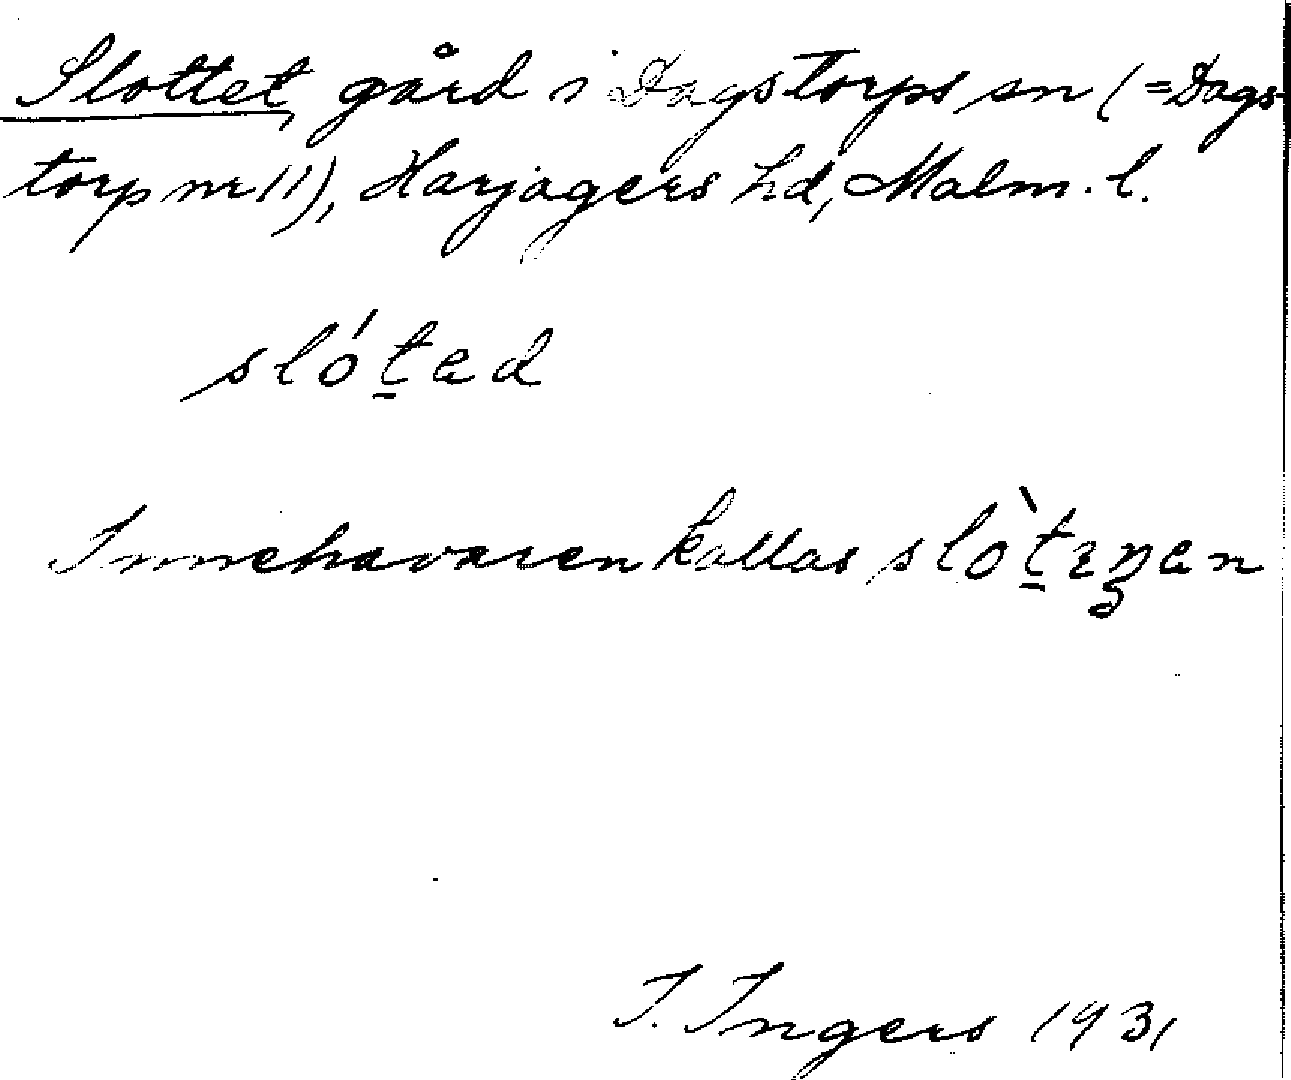 Slottet, gård i Dagstorps sn (=Dags-
torp nr 11), Harjagers hd, Malm. l.
slót̲ed
Innehavaren kallas
I. Ingers 1931